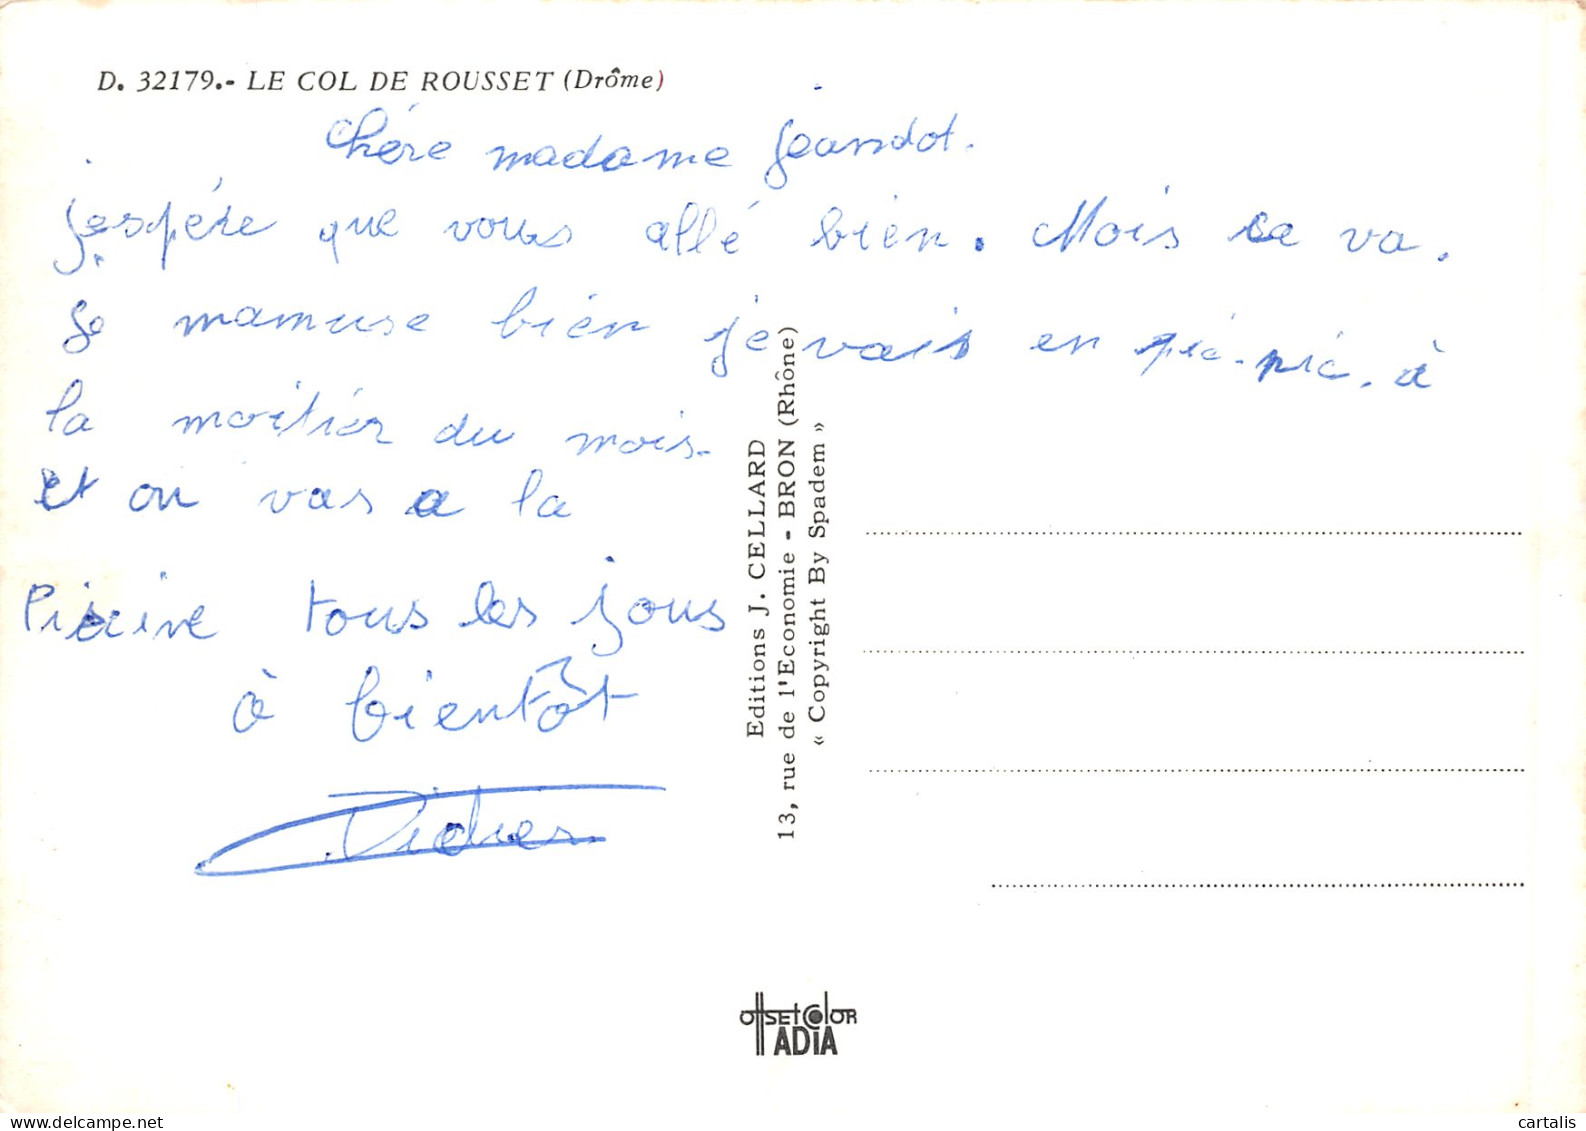 D. 32179.- LE COL DE ROUSSET (Drôme)
Chére madame Jeandot.
jespére que vous allé bien. Mois ca va.
Je mamuse bien je vais en pic-nic. à
la moitier du mois.
et on vas a la
Piscine tous les jous
à bientôt
Didier
Editions J. CELLARD
13, rue de l'Economie - BRON (Rhône)
« Copyright By Spadem »
OffsetColor
ADIA
cartalis
delcampe.net